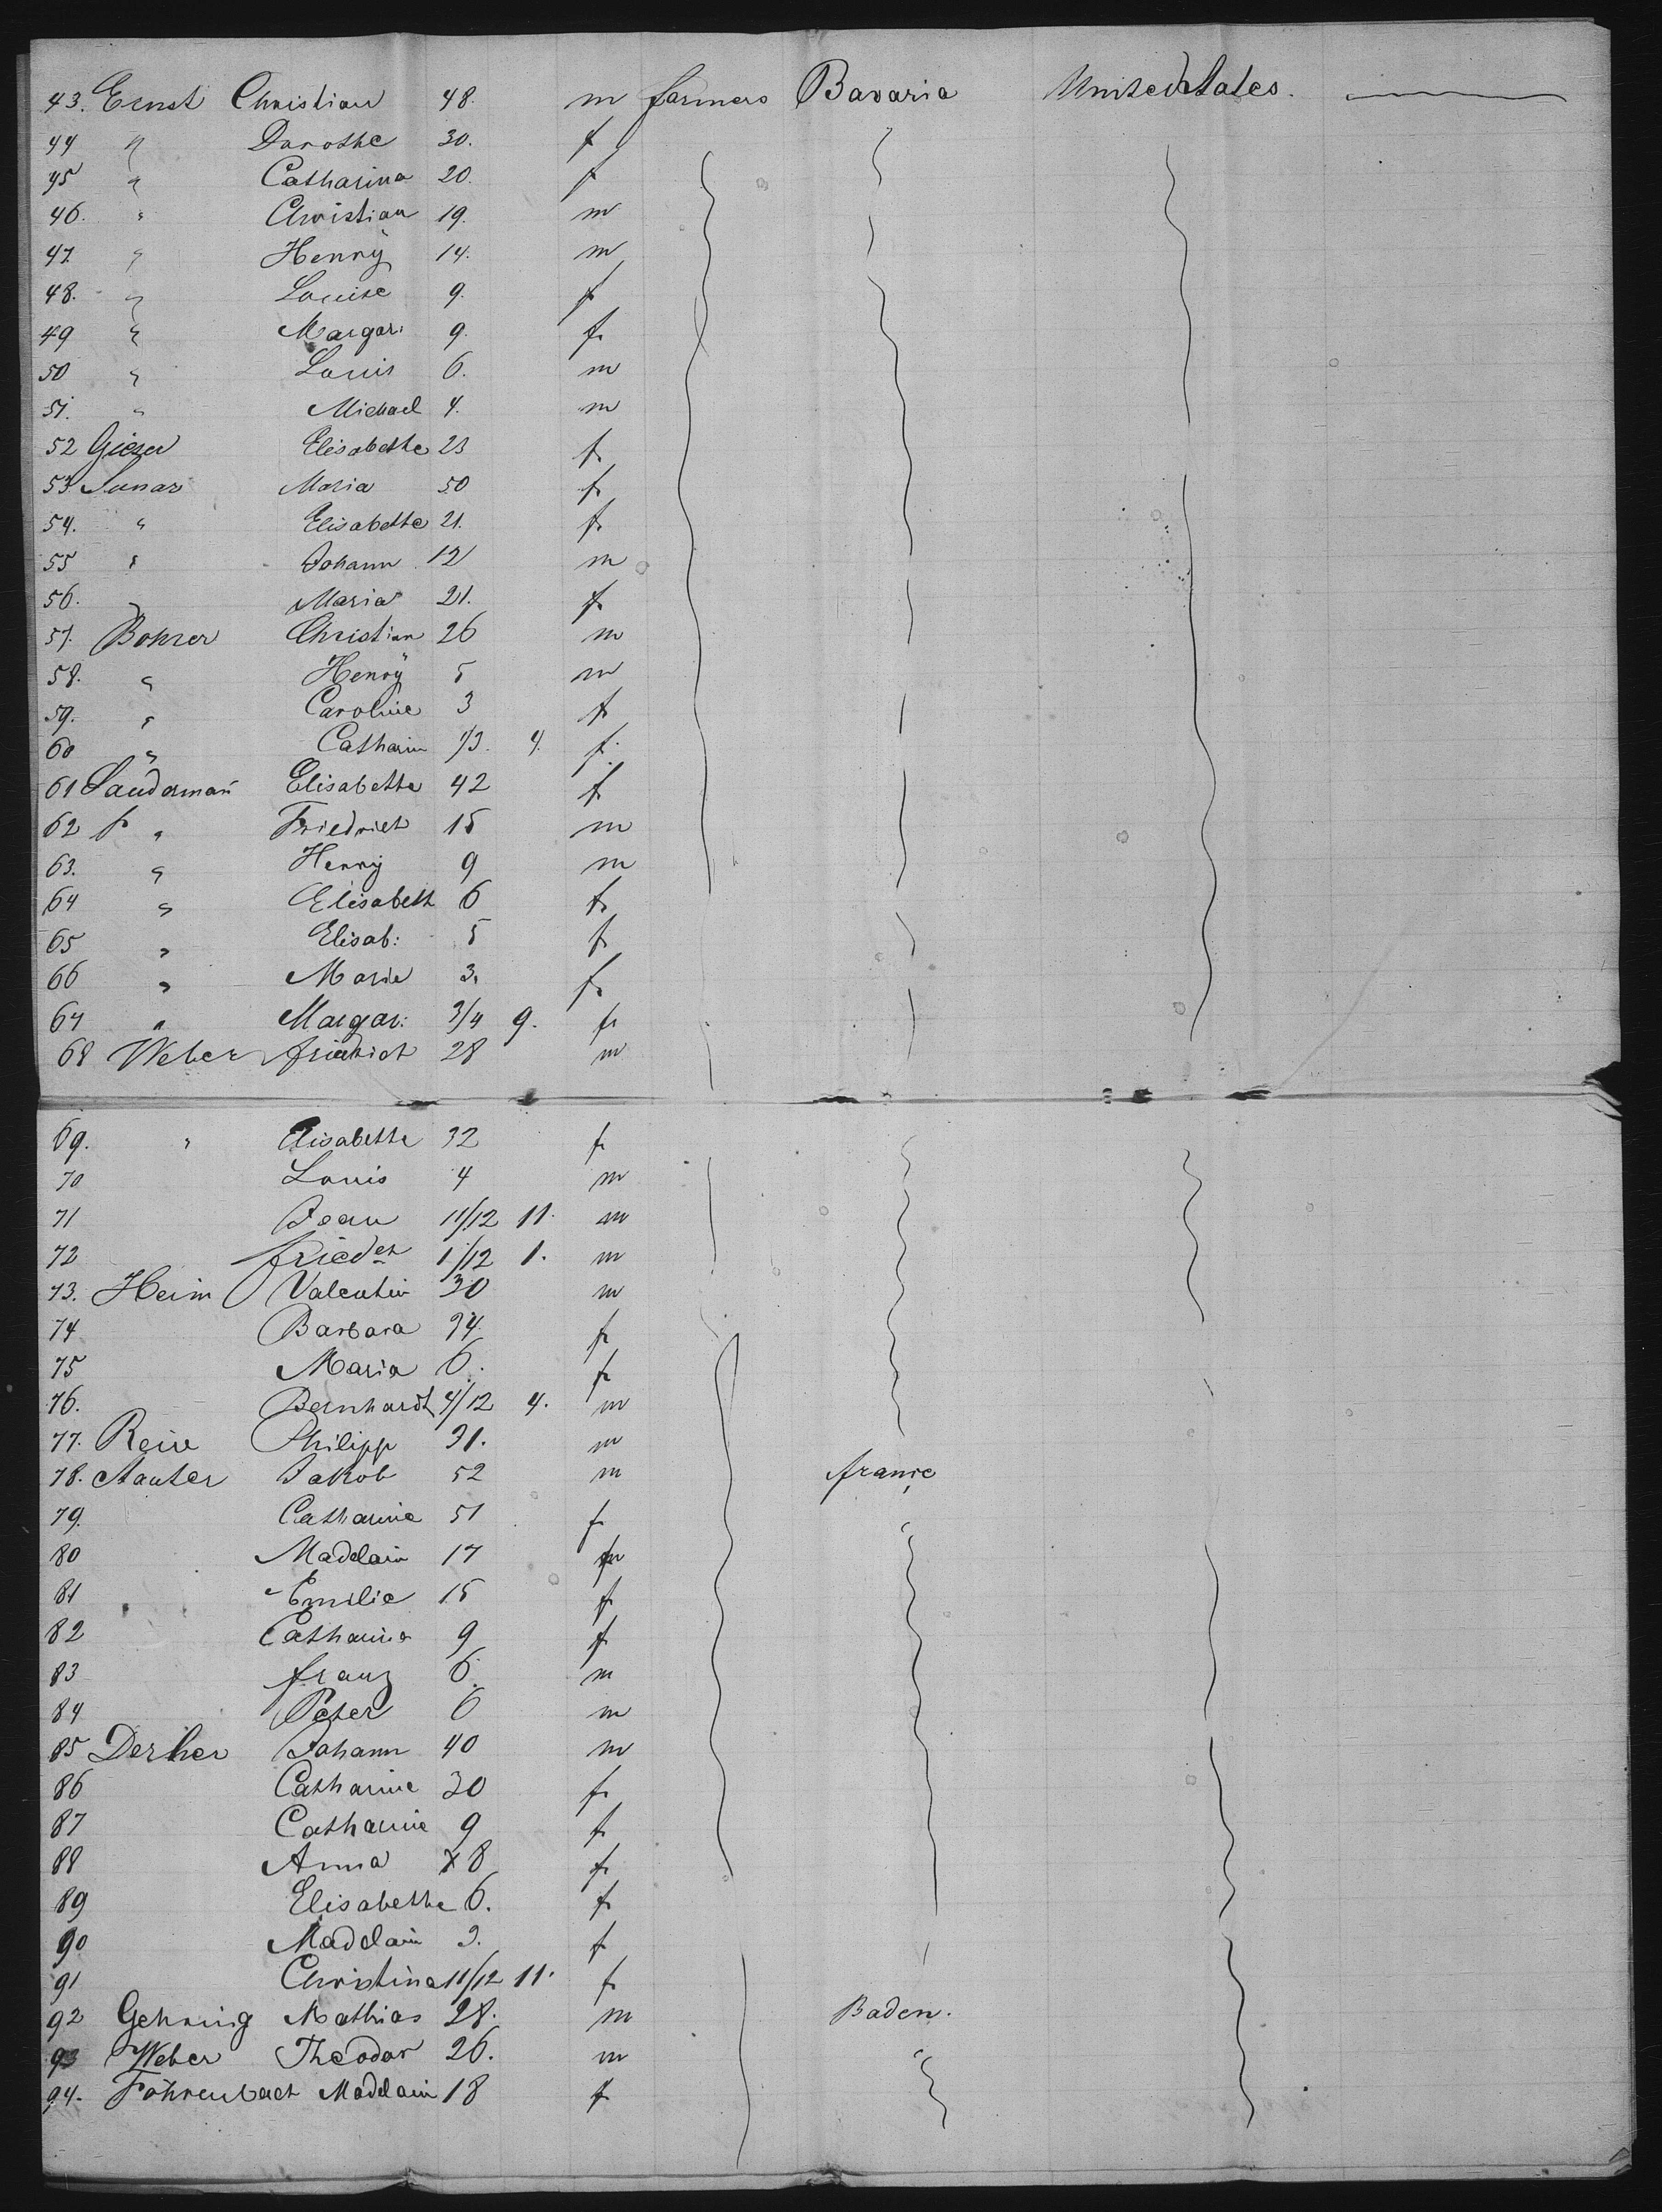 43. Ernst Christian 48. m farmers Bavaria United States.
44 " Dorothe 30. f
45 " Catharina 20. f
46. " Christian 19. m
47. " Henry 14. m
48. " Louise 9. f
49 " Margar: 9. f
50 " Louis 6. m
51. " Michael 4. m
52 Elisabethe 23 f
53. Maria 50 f
54. " Elisabethe 21. f
55 " Johann 12 m
56. " Maria 21. f
57. Bohrer Christian 26 m
58. " Henry 5 m
59. " Caroline 3 f
60 " Catharin 1/3. 4. f.
61 Elisabethe 42 f
62 f " Friedrich 15 m
63. " Henry 9 m
64 " Elisabeth 6 f
65 " Elisab: 5 f
66 " Marie 3. f
67 " Margar: 3/4 9. f
68 Weber friedrich 28 m
69. " Elisabethe 32 f
70 Louis 4 m
71 Jean 11/12 11. m
72 friedch 1/12 1. m
73. Heim Valentin 30 m
74 Barbara 34 f
75 Maria 6. f
76. Bernhardt 4/12 4. m
77. Philipp 31. m
78. Jakob 52 m france
79. Catharine 51 f
80 Madelain 17 f
81 Emilie 15 f
82 Catharine 9 f
83 franz 6. m
84 Peter 6 m
85 Derher Johann 40 m
86 Catharine 30 f
87 Catharine 9 f
88 Anna 8 f
89 Elisabethe 6. f
90 Madelain 3. f
91 Christine 11/12 11. f
92 Gehring Mathias 28. m Baden.
93 Weber Theodor 26. m
94. Föhrenbach Madelain 18 f